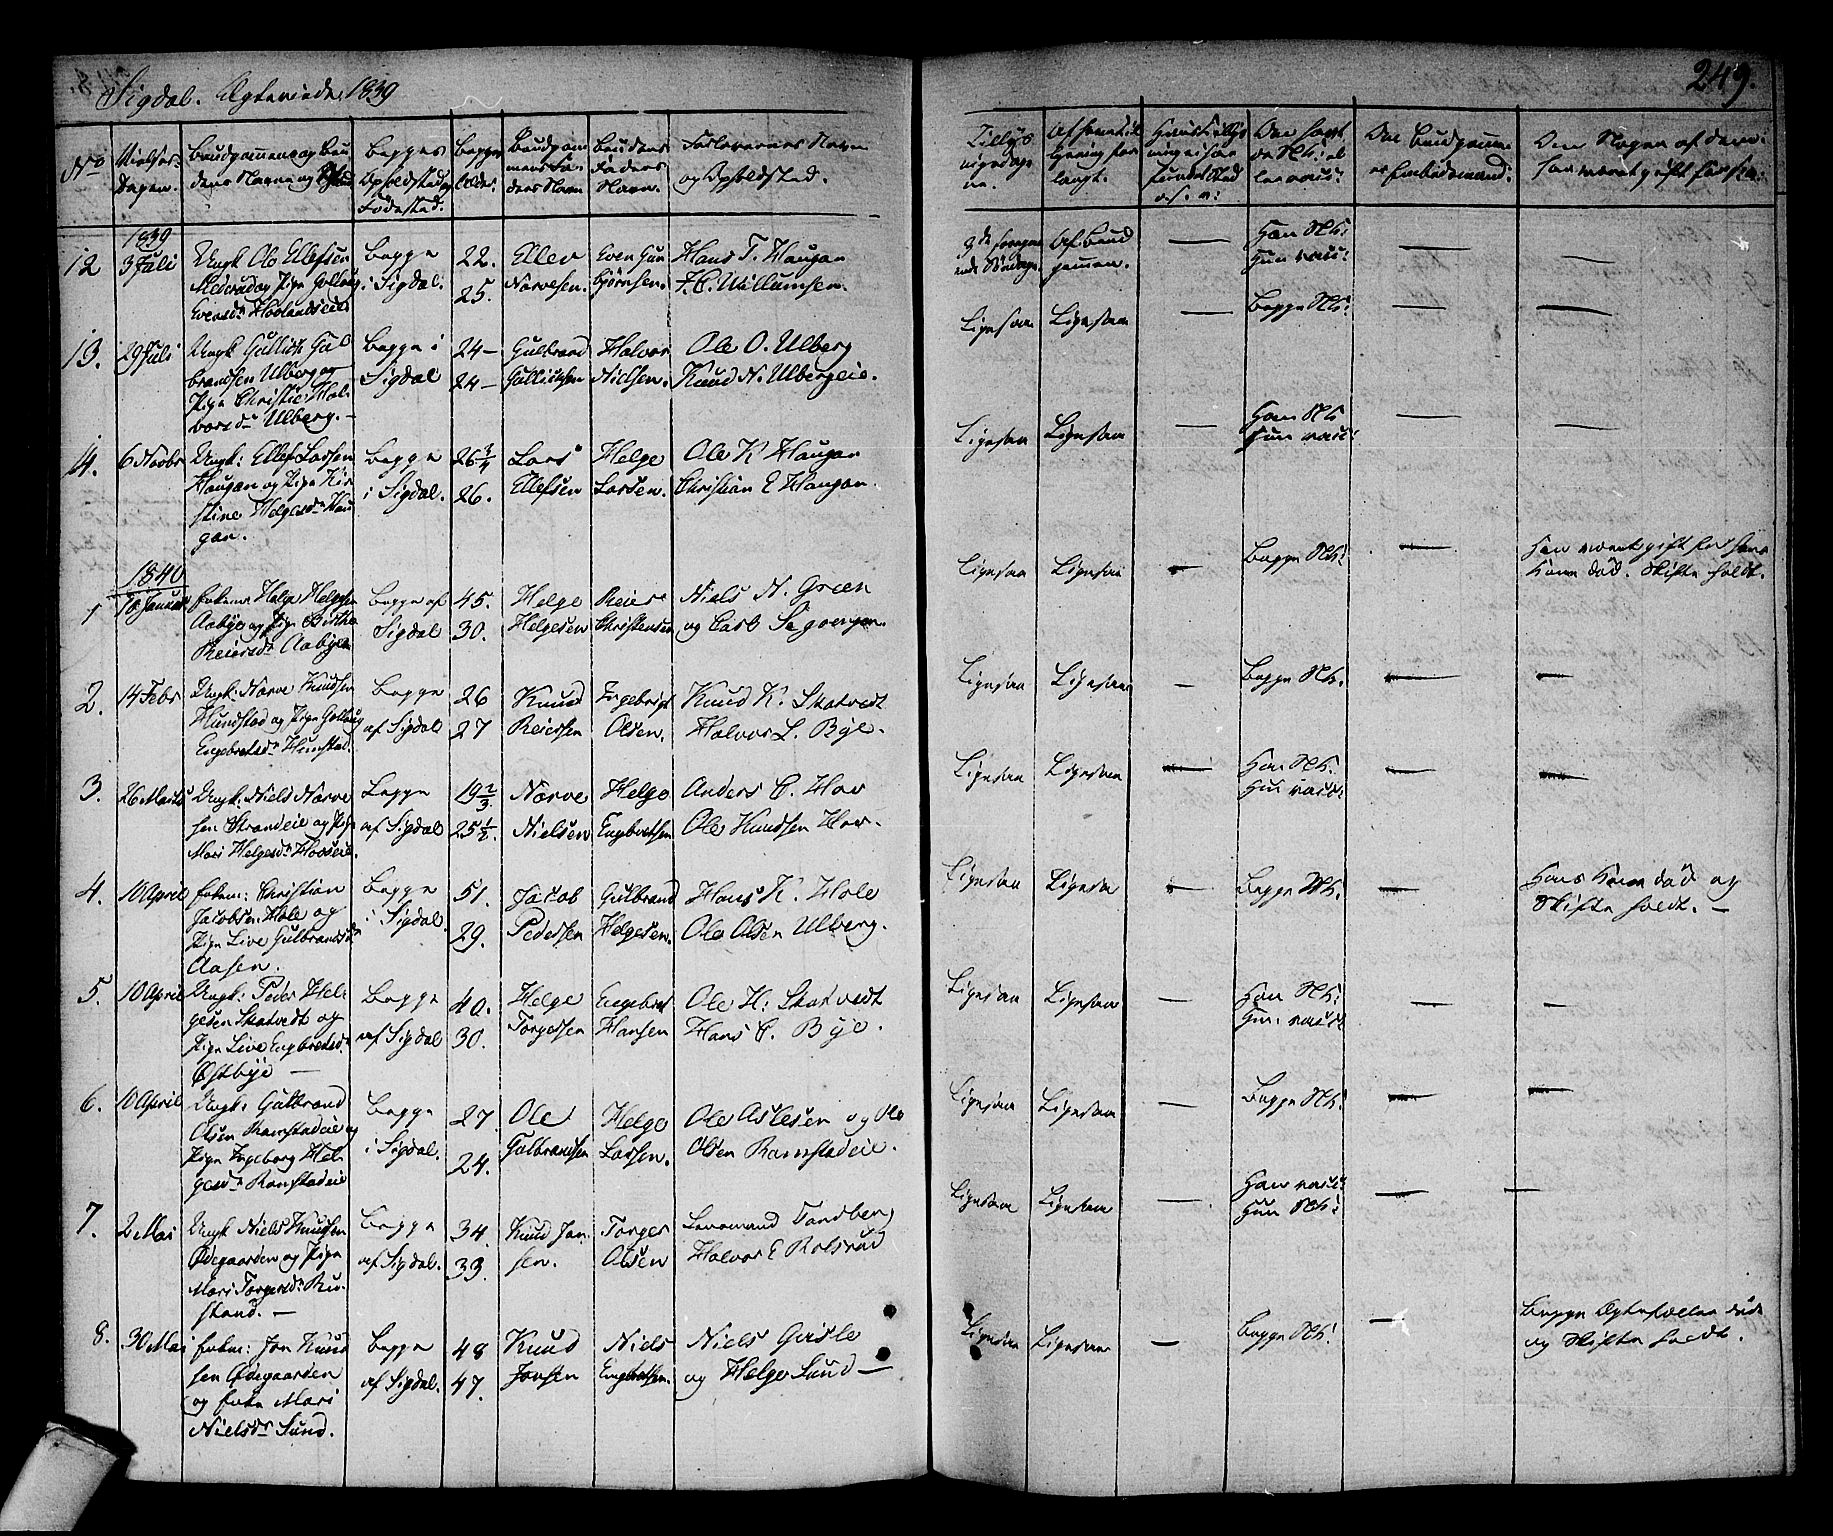 Sigdal. Ægteviede 1839
249.
No
Vielses-
Dagen.
Brudgommens og Bru
dens Navne og
Begges
Opholdsted og
Fødested.
Begges
Alder.
Brudgom
mens Fa
ders Navn
Brudens
Faders
Navn.
Forlovernes Navn
og Opholdsted.
Tillys
nigsdage
ne.
Af hvem til
lysning for
langt.
Om havt
de Nk: el
ler vacc:
Om Brudgommen
er Embedsmand.
Om Nogen af dem
har været gift før &c:
1839
12
3 Juli
Ungk Ole Ellefsen
og Pige Gollaug
Evensdr Hovlandseie
Begge
i Sigdal.
22.
25.
Ellev
Narvesen.
Even Gun
bjørnsen.
Hans T. Haugan
H. C. Willumsen.
3de foregaa
ende Søndage.
Af Brud
gommen.
—
Han Nk:
Hun vacc:
—
—
13.
29 Juli
Ungk Gullich Gul
brandsen Ulberg og
Pige Christie Hal
vorsdr Ulberg. —
Begge i
Sigdal
24 —
24 —
Gulbrand
Gullichsen
Halvor
Nielsen.
Ole O. Ulberg
Knud N. Ulbergeie.
Ligesaa
Ligesaa
—
Begge Nk:
—
—
14.
6 Novbr
Ungk: Ellef Larsen
Haugan og Pige Kir
stine Helgesdr Hau
gan.
Begge
i Sigdal.
26 3/4
26.
Lars
Ellefsen
Helge
Larsen.
Ole K Haugan
Christian E Haugan.
Ligesaa
Ligesaa
—
Han Nk
Hun vacc:
—
—
1840
1
Januar
Enkem: Helge Helgesen
Aabye og Pige Birthe
Reiersdr Aabye
Begge af
Sigdal
45.
30.
Helge
Helgesen
Reier
Christensen
Niels N. Green
og Carl
Ligesaa
Ligesaa
—
Begge Nk:
—
Han været gift før hans
Kone død. Skifte holdt.
2.
14 Febr
Ungk: Narve Knudsen
Hunstad og Pige Gollaug
Engebretsdr Hunstad.
Begge
af Sigdal
26
27
Knud
Reiersen
Ingebrigt
Olsen.
Knud K. Skatvedt
Halvor L. Bye.
Ligesaa
Ligesaa
—
Begge Nk.
—
—
3.
26 Marts
Ungk: Niels Narve
sen Strandeie og Pige
Mari Helgesdr Hovseie.
Begge
af Sigdal
19 2/3
25 1/2.
Narve
Nielsen
Helge
Engebretsen
Anders C. Hov
Ole Knudsen Hov.
Ligesaa
Ligesaa
—
Han Nk.
Hun vacc:
—
—
4.
10 April
Enkem: Christian
Jacobsen Hole og
Pige Live Gulbrandsdr
Aasen.
Begge
i Sigdal.
51.
29.
Jacob
Pedersen
Gulbrand
Helgesen.
Hans K. Hole
Ole Olsen Ulberg.
Ligesaa
Ligesaa
—
Begge Nk:
—
Hans Kone død og
Skifte holdt. —
5.
10 April
Ungk: Peder Hel
gesen Skatvedt og
Pige Live Engebretsdr
Østbye —
Begge
af Sigdal
40.
30.
Helge
Torgersen
Engebret
Hansen
Ole H: Skatvedt
Hans C. Bye.
Ligesaa
Ligesaa
—
Han Nk:
Hun vacc:
—
—
6.
10 April
Ungk: Gulbrand
Olsen Ramstadeie og
Pige Ingeborg Hel
gesdr Ramstadeie
Begge
i Sigdal.
27.
24.
Ole
Gulbrandsen
Helge
Larsen.
Ole Aslesen og Ole
Olsen Ramstadeie.
Ligesaa
Ligesaa
—
Begge Nk:
—
—
7.
2 Mai
Ungk Niels Knudsen
Ødegaarden og Pige
Mari Torgersdr Ru
stand. —
Begge
af Sigdal.
34.
33.
Knud Jon
sen.
Torger
Olsen
Tandberg
Halvor E Rolsrud
Ligesaa
Ligesaa
—
Han vacc:
Hun Nk:
—
—
8.
30 Mai
Enkem: Jon Knud
sen Ødegaarden
og Enke Mari
Nielsdr Sund.
Begge
af Sigdal.
48
47.
Knud
Jonsen
Niels
Engebretsen.
Niels Girsle
og Helge Sund —
Ligesaa
Ligesaa
—
Begge Nk:
—
Begge Ægtefæller døde
og Skifte holdt.